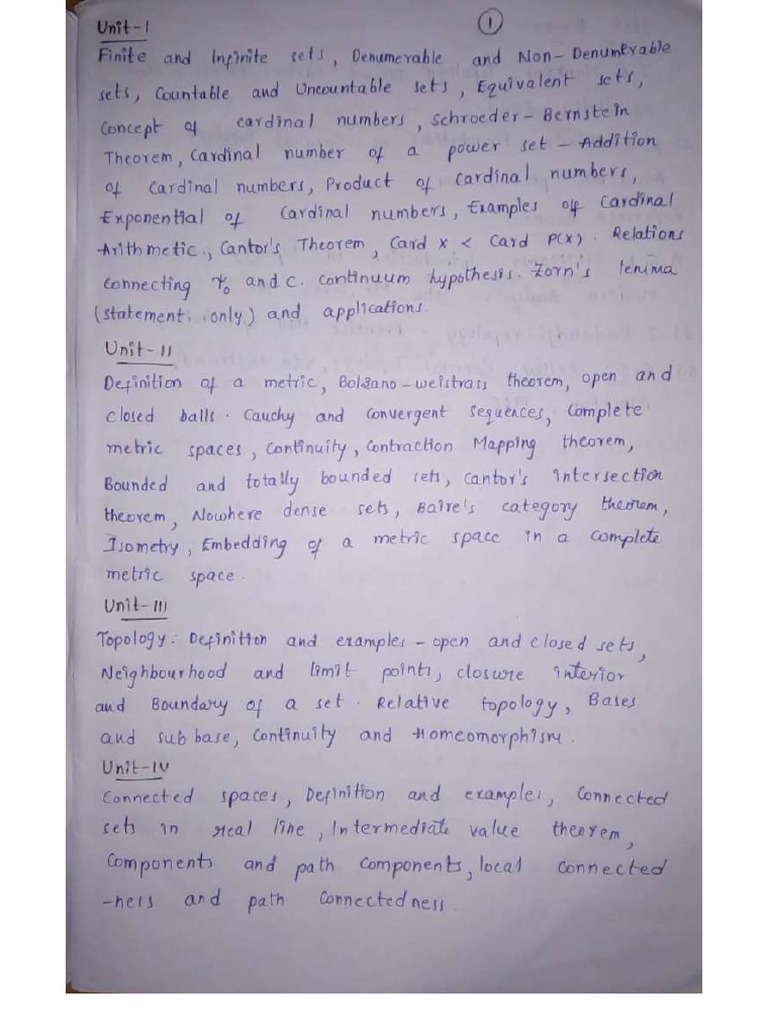 Unit-I
①
Finite and Infinite sets, Denumerable and Non-Denumerable
sets, Countable and Uncountable sets, Equivalent sets,
Concept of cardinal numbers, Schroeder-Bernstein
Theorem, Cardinal number of a power set - Addition
of Cardinal numbers, Product of Cardinal numbers,
Exponential of Cardinal numbers, Examples of Cardinal
Arithmetic, Cantor's Theorem, Card X < Card P(X). Relations
connecting ℵ₀ and c. continuum hypothesis. Zorn's lemma
(statement only) and applications.
Unit-II
Definition of a metric, Bolzano-weistrass theorem, open and
closed balls. Cauchy and convergent sequences, Complete
metric spaces, Continuity, Contraction Mapping theorem,
Bounded and totally bounded sets, Cantor's intersection
theorem, Nowhere dense sets, Baire's category theorem,
Isometry, Embedding of a metric space in a complete
metric space.
Unit-III
Topology: Definition and examples - open and closed sets,
Neighbourhood and limit points, closure interior
and Boundary of a set. Relative topology, Bases
and sub base, Continuity and Homeomorphism.
Unit-IV
Connected spaces, Definition and examples, Connected
sets in real line, Intermediate value theorem,
Components and path components, local connected
-ness and path Connectedness.